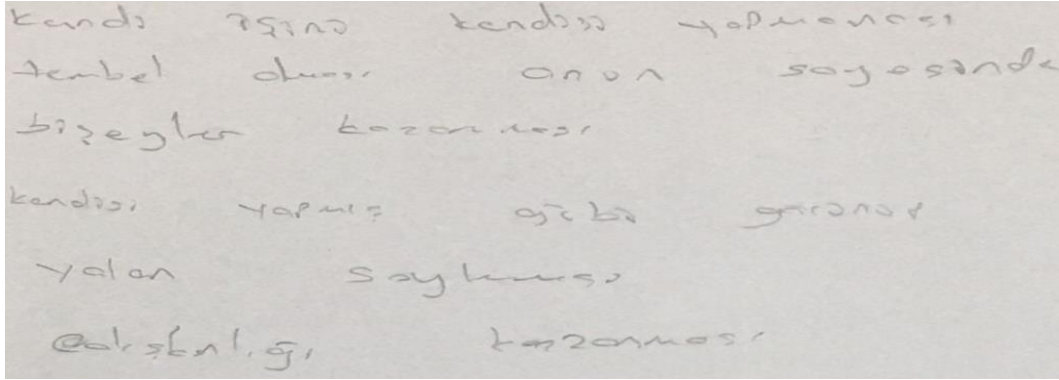 kendi işini kendisi yapmaması
tembel olması onun sayesinde
bişeyler kazanması
kendisi yapmış gibi
yalan söylemesi
çalışkanlığı kazanması